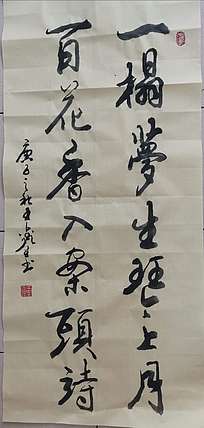 一榻夢生琴上月
百花香入案頭詩
庚子之秋王